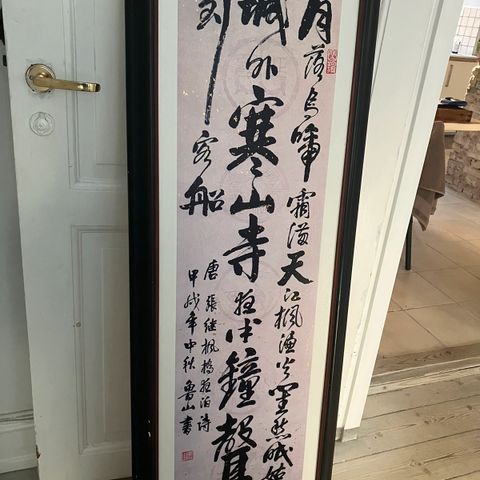 月落烏啼霜滿天江楓漁火對愁眠姑
城外寒山寺夜半鐘聲
到客船
唐張继楓橋夜泊詩
甲戌年中秋魯山書